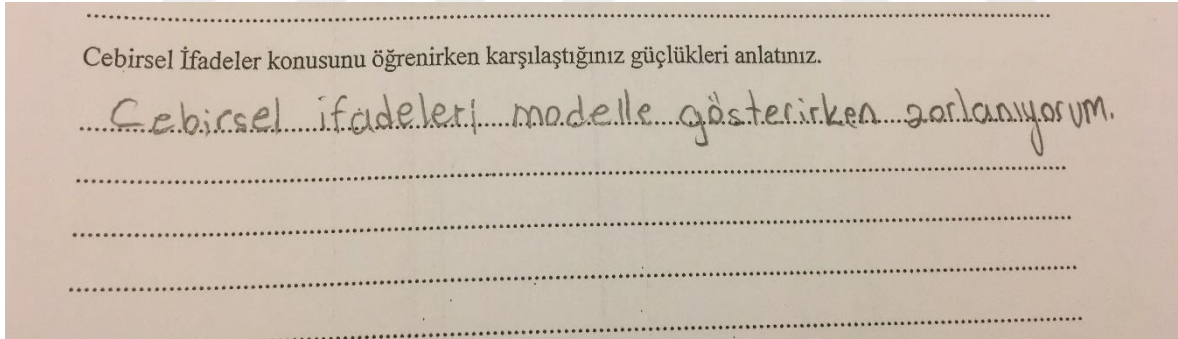 Cebirsel İfadeler konusunu öğrenirken karşılaştığınız güçlükleri anlatınız.
Cebirsel ifadeleri modelle gösterirken zorlanıyorum.